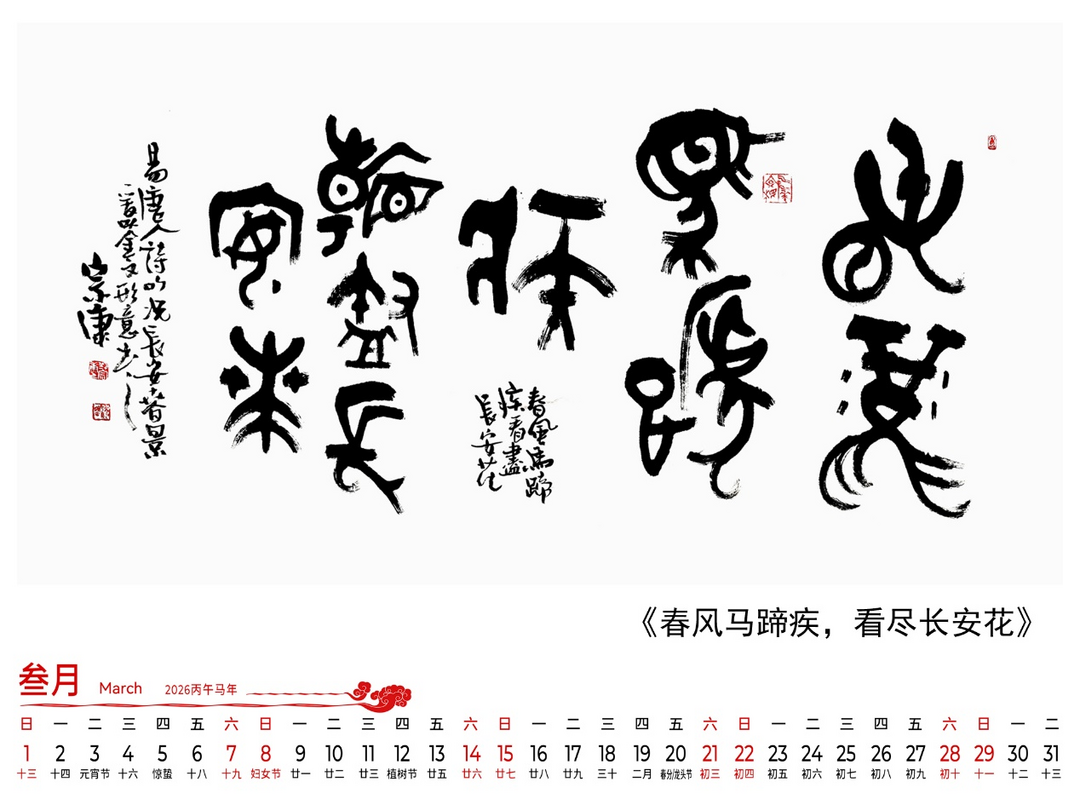 春風馬蹄
疾看盡
長安花
宗康
《春风马蹄疾，看尽长安花》
叁月 March 2026丙午马年
日 一 二 三 四 五 六 日 一 二 三 四 五 六 日 一 二 三 四 五 六 日 一 二 三 四 五 六 日 一 二
1 2 3 4 5 6 7 8 9 10 11 12 13 14 15 16 17 18 19 20 21 22 23 24 25 26 27 28 29 30 31
十三 十四 元宵节 十六 惊蛰 十八 十九 妇女节 廿一 廿二 廿三 植树节 廿五 廿六 廿七 廿八 廿九 三十 二月 春分/龙头节 初三 初四 初五 初六 初七 初八 初九 初十 十一 十二 十三